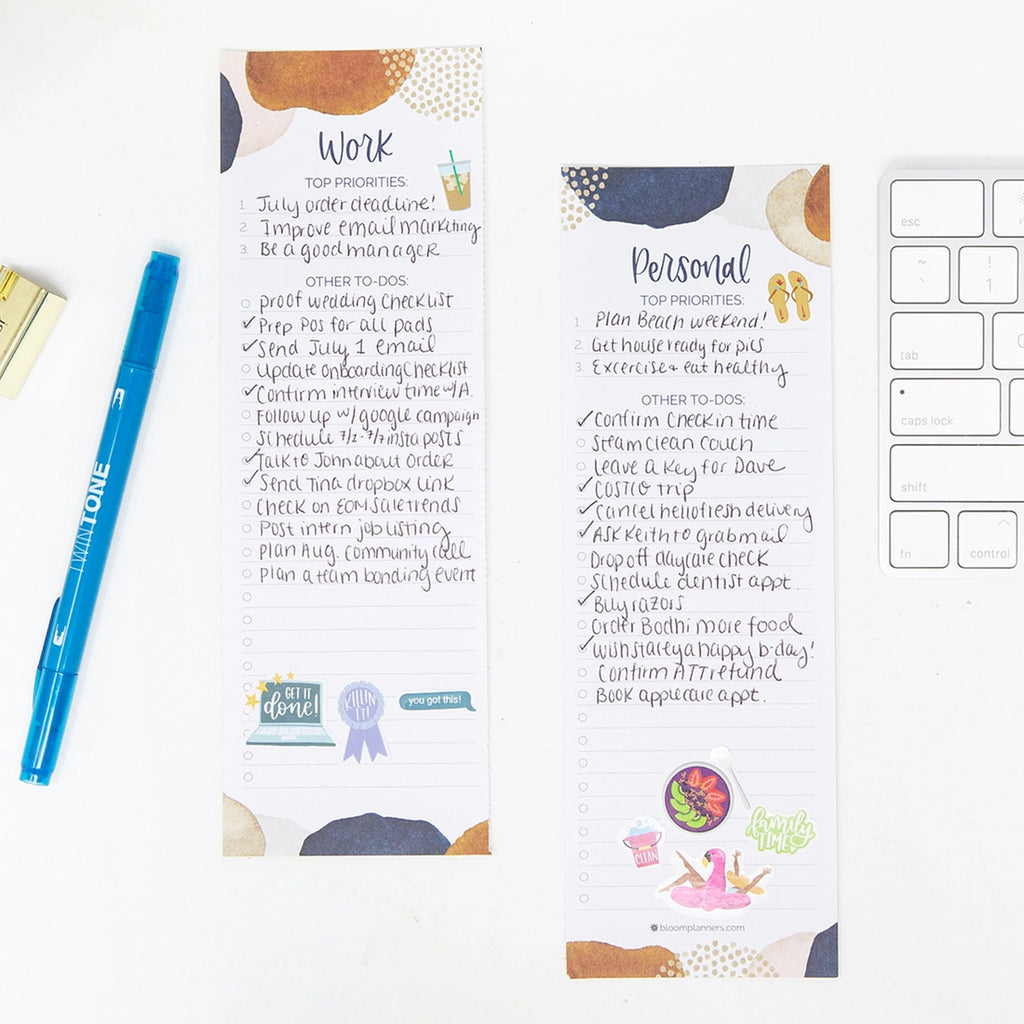 Work
TOP PRIORITIES:
1. July order deadline!
2. Improve email marketing
3. Be a good manager
OTHER TO-DOS:
proof wedding checklist
Prep POs for all pads
Send July 1 email
Update onboarding checklist
Confirm interview time w/A.
Follow up w/ google campaign
Schedule 7/2-7/7 insta posts
Talk to John about order
Send Tina dropbox link
Check on EOM sale trends
Post intern job listing
Plan Aug. community call
Plan a team bonding event
GET IT
done!
KILLIN'
IT!
you got this!
Personal
TOP PRIORITIES:
1. Plan Beach weekend!
2. Get house ready for pics
3. Excercise + eat healthy
OTHER TO-DOS:
Confirm Check in time
Steam clean couch
Leave a key for Dave
COSTCO trip
Cancel hellofresh delivery
Ask Keith to grab mail
Drop off daycare check
Schedule dentist appt.
Buy razors
Order Bodhi more food
Wish starey a happy b-day!
Confirm ATT refund
Book applecare appt.
family
TIME
CLEAN
bloomplanners.com
TWINTONE
esc
~
`
!
1
tab
Q
caps lock
shift
fn
control